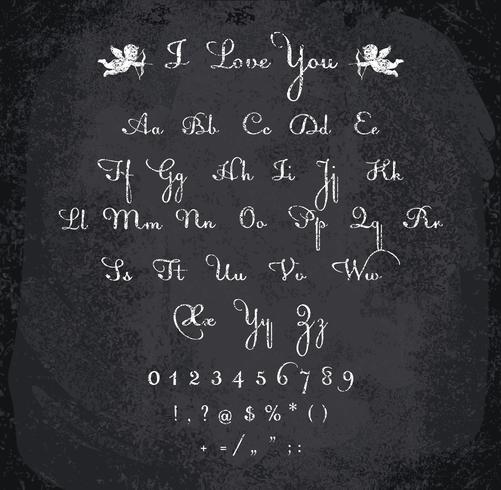 I Love You
Aa Bb Cc Dd Ee
Ff Gg Hh Ii Jj Kk
Ll Mm Nn Oo Pp Qq Rr
Ss Tt Uu Vv Ww
Xx Yy Zz
0 1 2 3 4 5 6 7 8 9
! , ? @ $ % * ( )
+ = / „ ” ; :